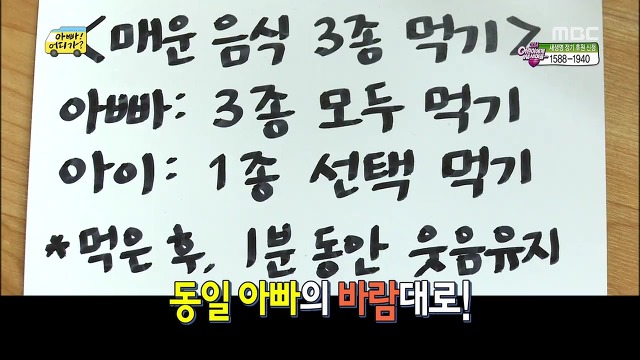 아빠!
어디가?
MBC
새생명 장기 후원 신청
1588-1940
<매운 음식 3종 먹기>
아빠: 3종 모두 먹기
아이: 1종 선택 먹기
*먹은 후, 1분 동안 웃음유지
동일 아빠의 바람대로!